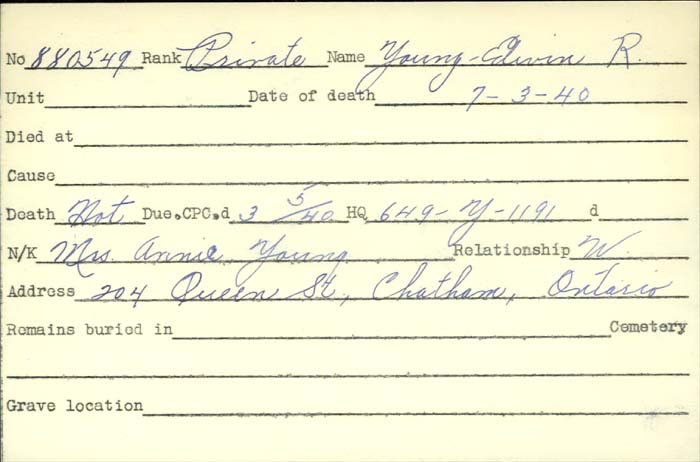 No 880549 Rank Private Name Young-Edwin R.
Unit Date of death 7-3-40
Died at
Cause
Death Not Due.CPC.d 3 5/40 HQ 649-Y-1191 d
N/K Mrs. Annie Young Relationship W.
Address 204 Queen St, Chatham, Ontario
Remains buried in Cemetery
Grave location